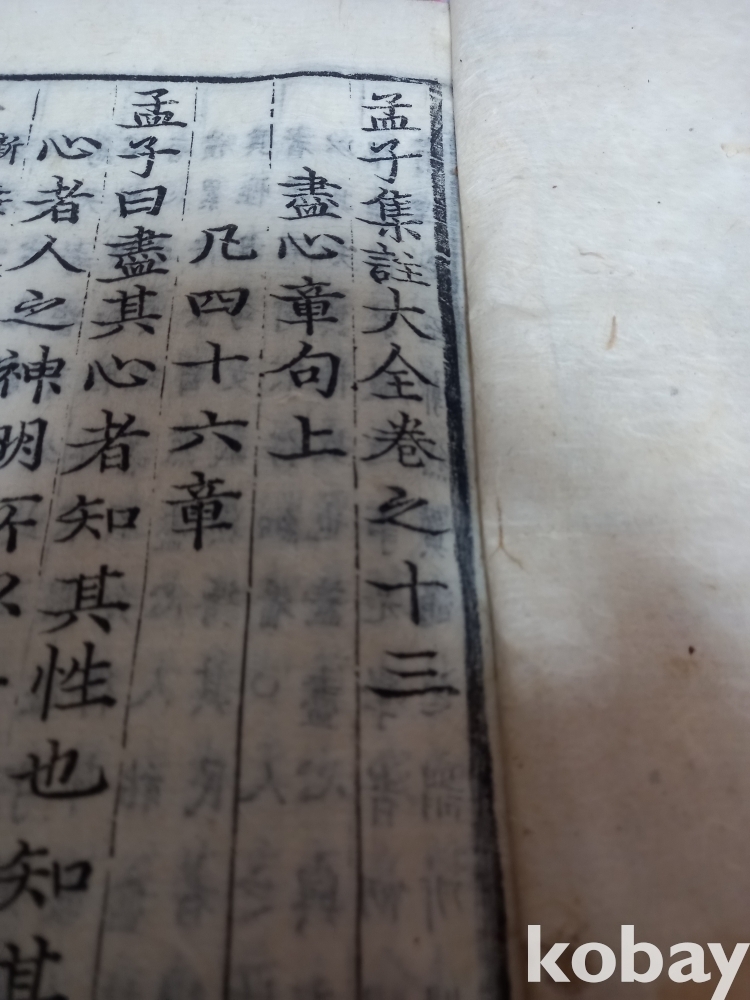 孟子集註大全卷之十三
盡心章句上
凡四十六章
孟子曰盡其心者知其性也知其
心者人之神明所以
kobay